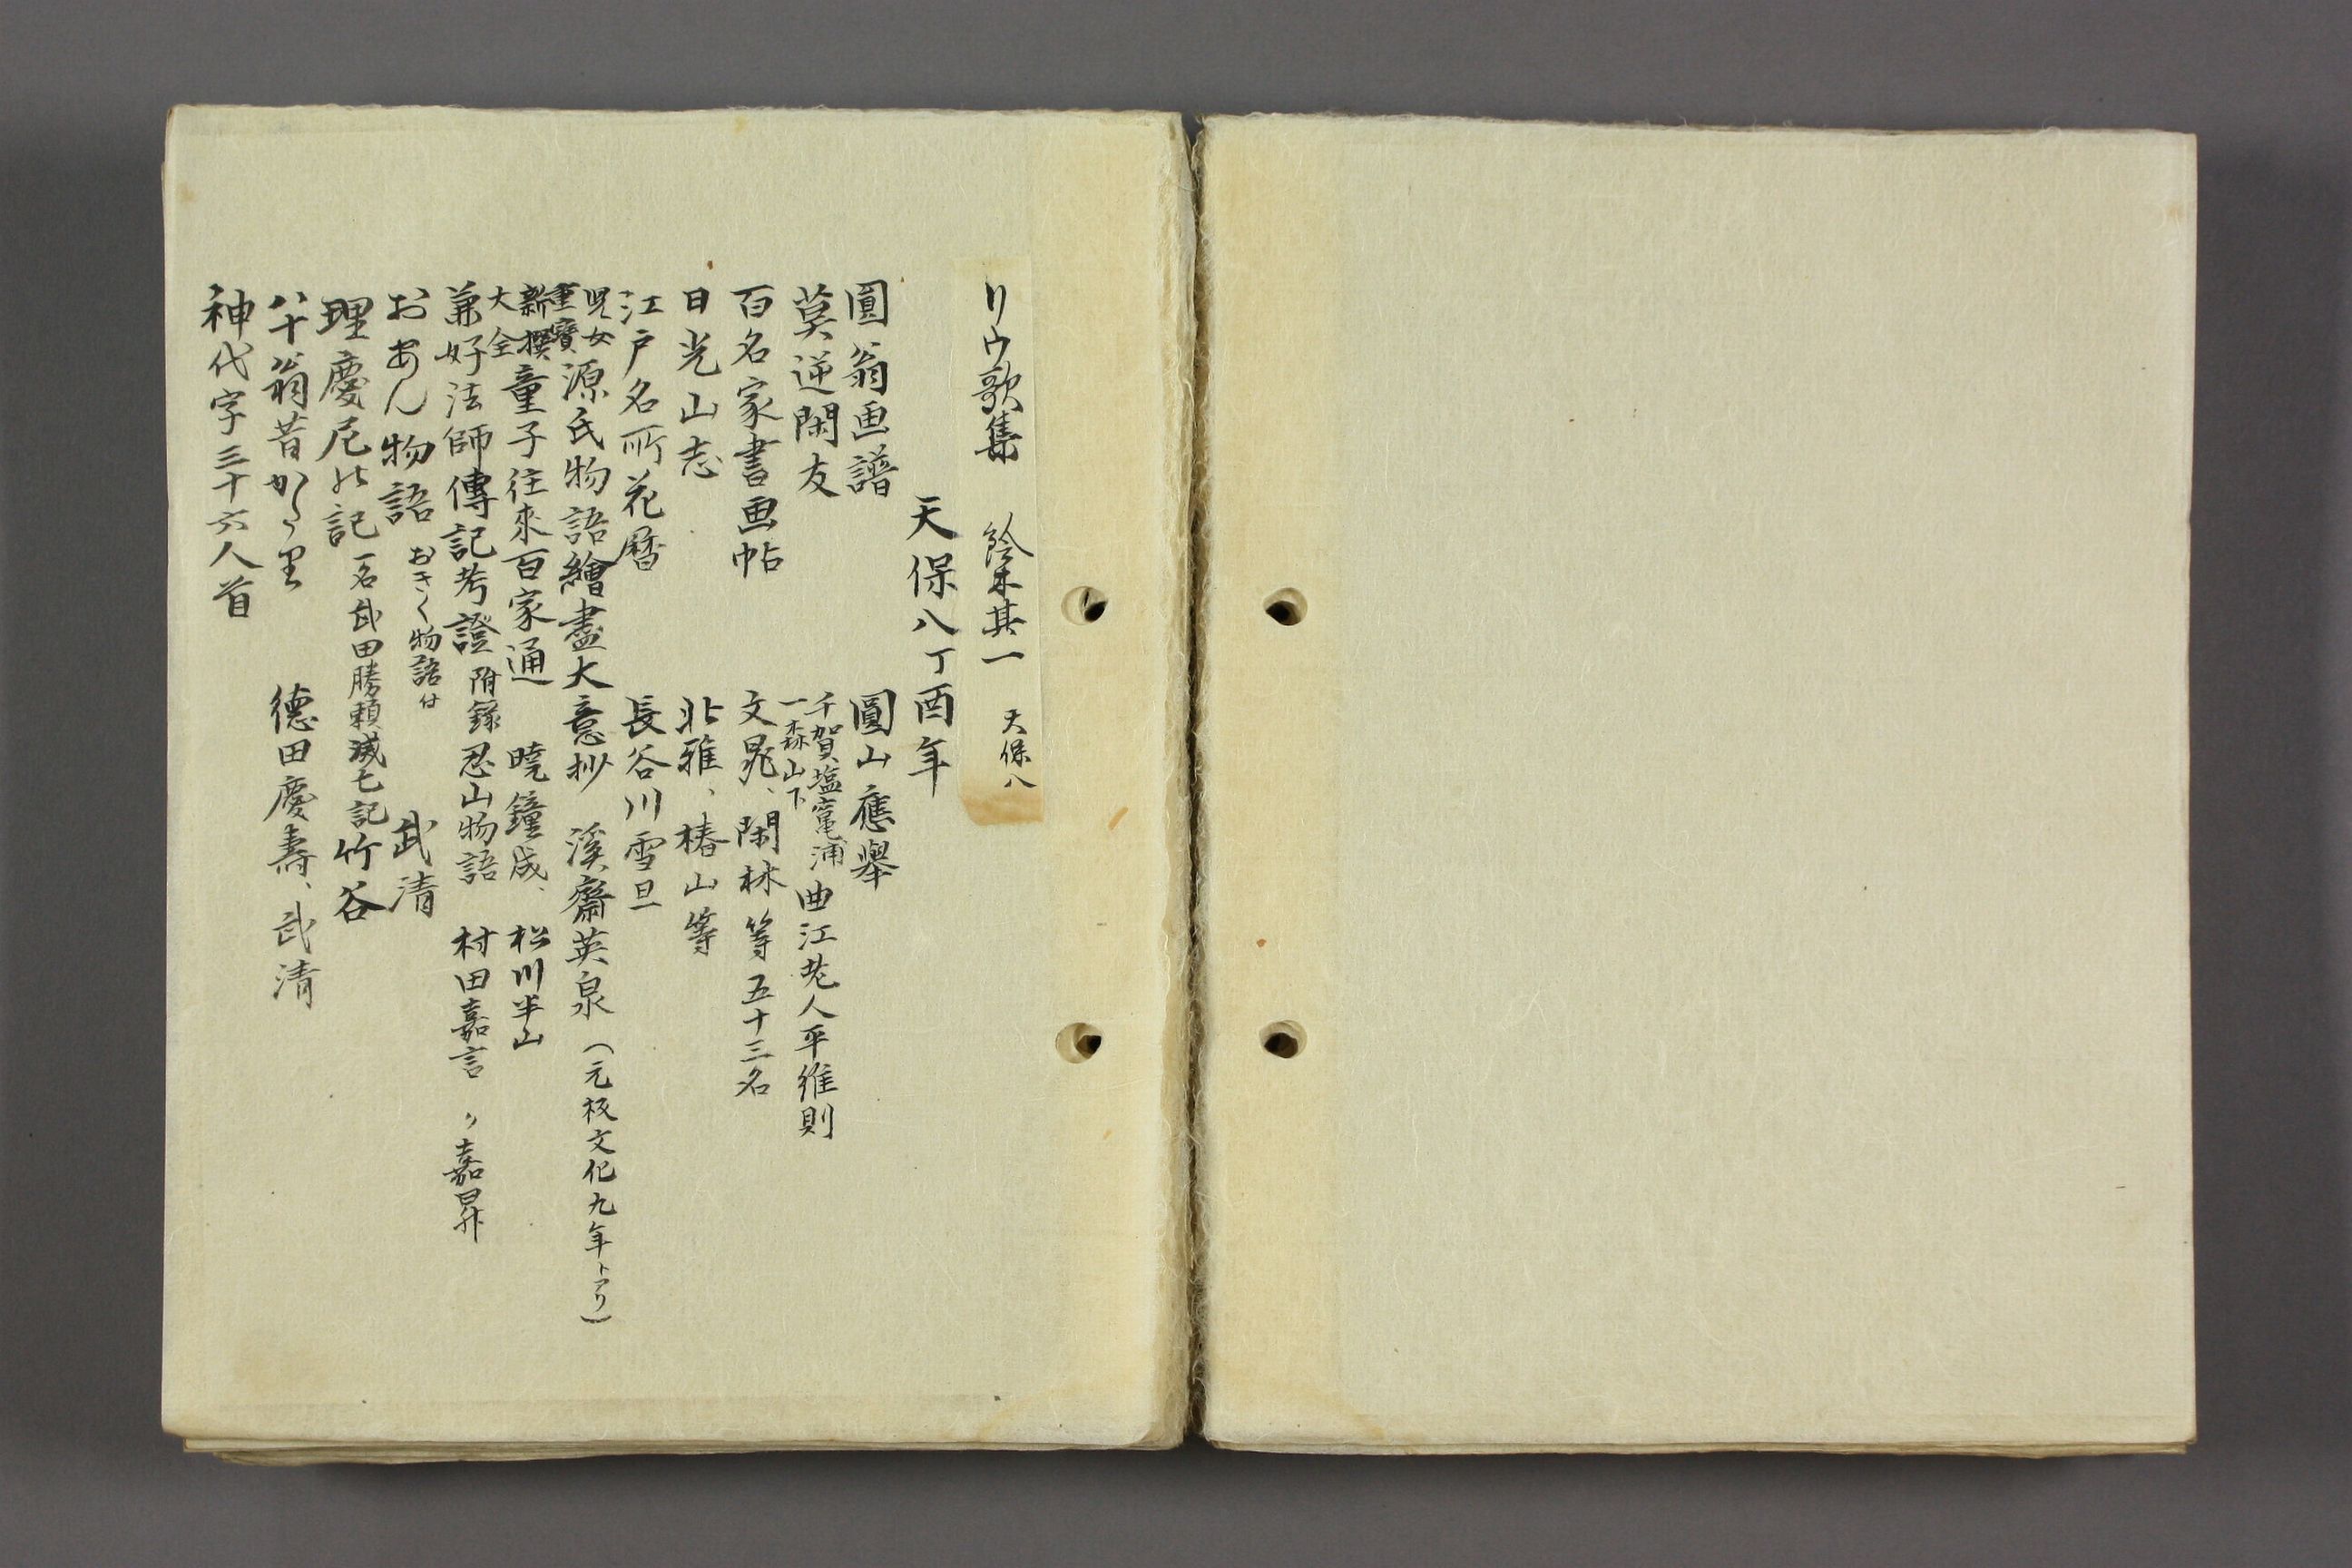 リウ歌集　鈴木其一　天保八
天保八丁酉年
圓翁画譜　圓山應擧
莫逆閑友　千賀塩竈浦一森山下　曲江老人平維則
百名家書画帖　文晁、閑林等五十三名
日光山志　北雅、椿山等
江戸名所花暦　長谷川雪旦
児女重寳　源氏物語繪盡大意抄　溪齋英泉（元板文化九年トアリ）
新撰大全　童子往來百家通　暁鐘成、松川半山
兼好法師傳記考證　附録忍山物語　村田嘉言　〃嘉昇
おあん物語　おきく物語付　武清
理慶尼の記　一名武田勝頼滅亡記　竹谷
八十翁昔かたり　德田慶壽、武清
神代字三十六人首